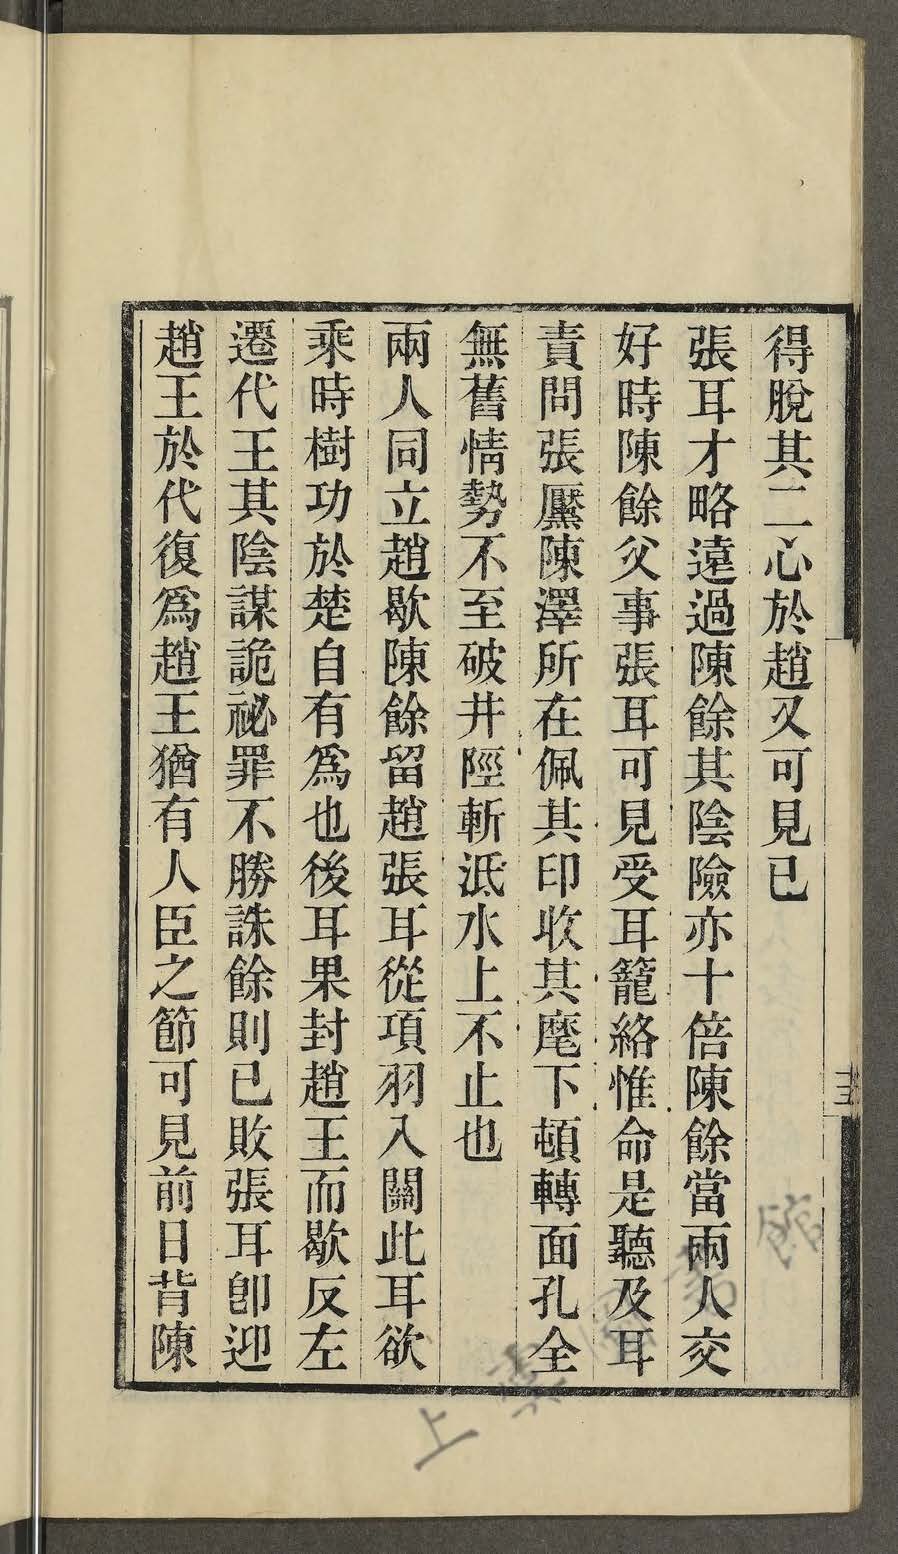 得脫其二心於趙又可見已
張耳才略遠過陳餘其陰險亦十倍陳餘當兩人交
好時陳餘父事張耳可見受耳籠絡惟命是聽及耳
責問張黶陳澤所在佩其印收其麾下頓轉面孔全
無舊情勢不至破井陘斬泜水上不止也
兩人同立趙歇陳餘留趙張耳從項羽入關此耳欲
乘時樹功於楚自有爲也後耳果封趙王而歇反左
遷代王其陰謀詭祕罪不勝誅餘則已敗張耳卽迎
趙王於代復爲趙王猶有人臣之節可見前日背陳